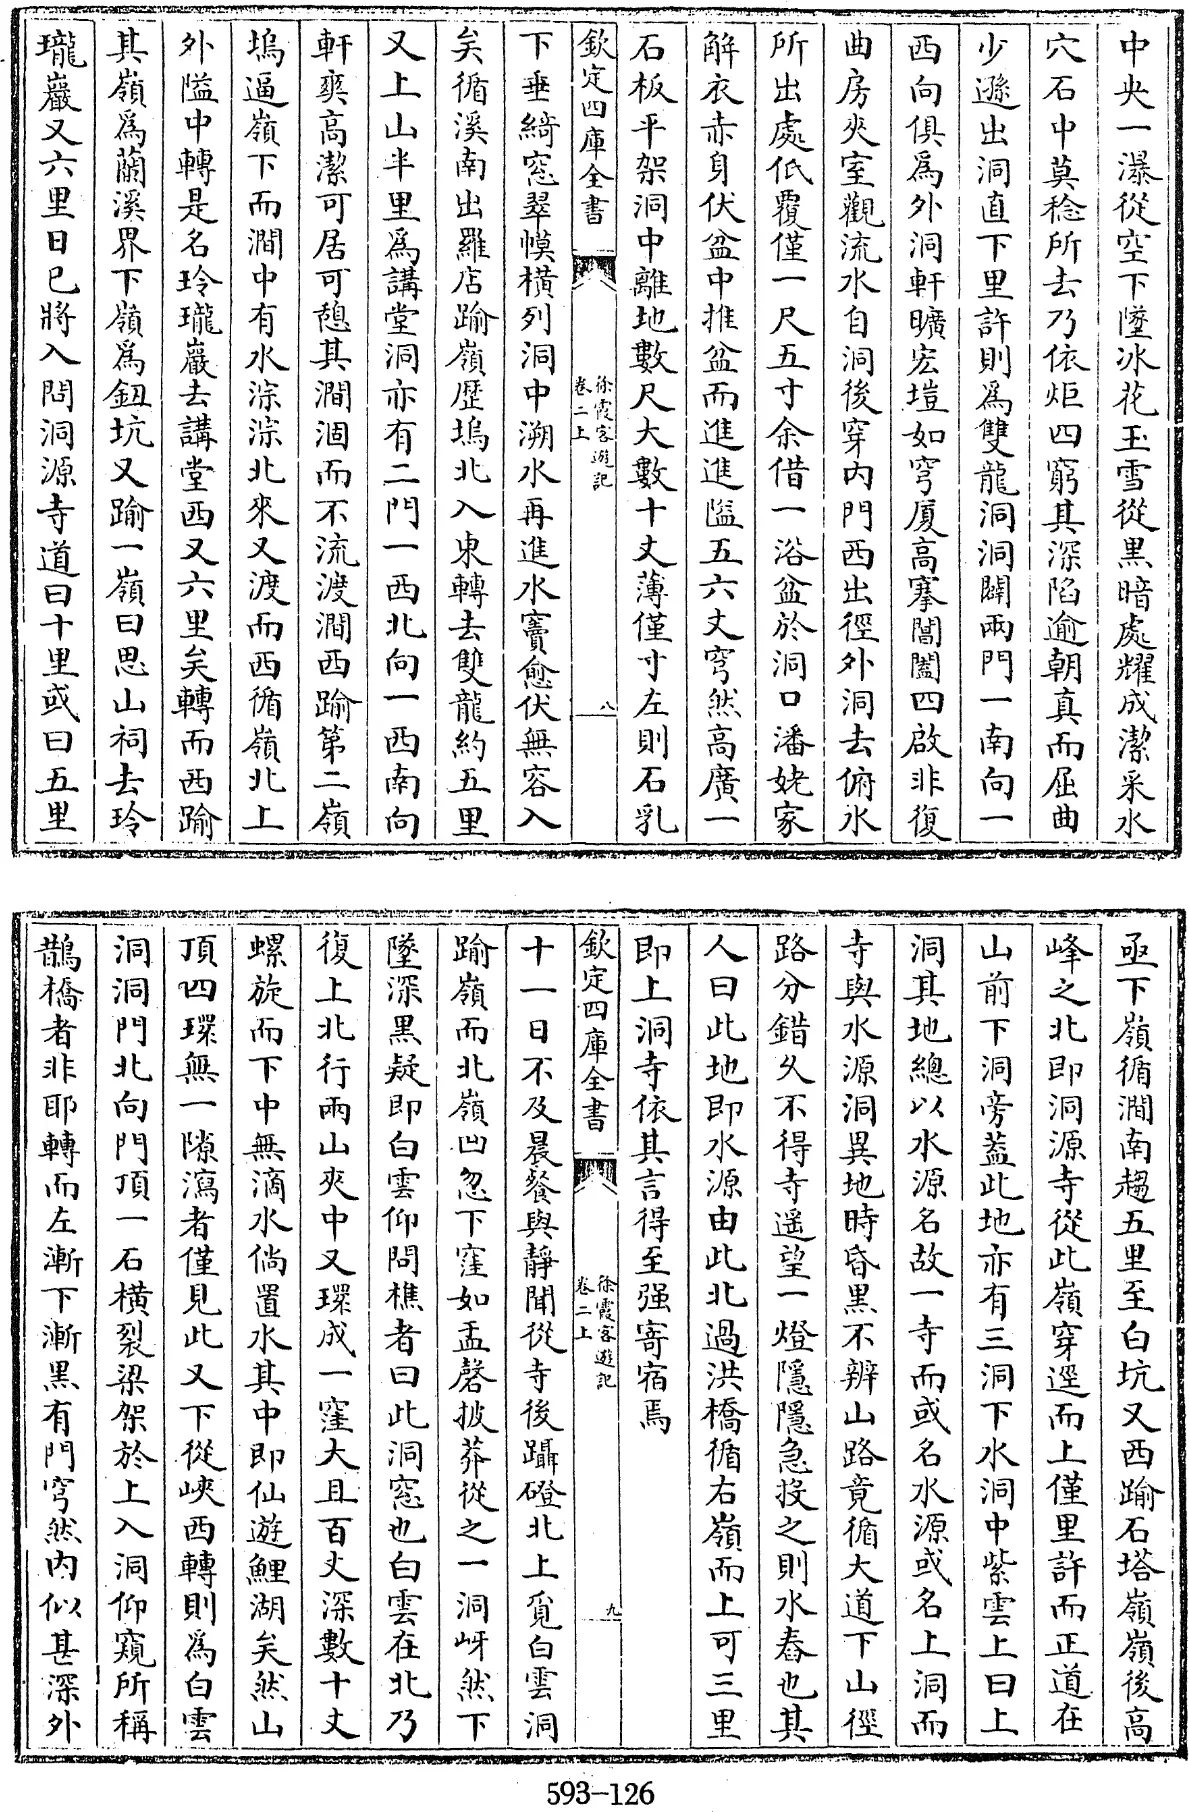 中央一瀑從空下墜冰花玉雪從黒暗處耀成潔采水
穴石中莫稔所去乃依炬四窮其深陷逾朝真而屈曲
少遜出洞直下里許則為雙龍洞洞闢兩門一南向一
西向俱為外洞軒曠宏塏如穹厦高搴閶闔四啟非復
曲房夾室觀流水自洞後穿内門西出徑外洞去俯水
所出處低覆僅一尺五寸余借一浴盆於洞口潘姥家
解衣赤身伏盆中推盆而進進隘五六丈穹然高廣一
石板平架洞中離地數尺大數十丈薄僅寸左則石乳
欽定四庫全書
徐霞客遊記
卷二上
八
下垂綺窓翠幙横列洞中溯水再進水竇愈伏無容入
矣循溪南出羅店踰嶺歴塢北入東轉去雙龍約五里
又上山半里為講堂洞亦有二門一西北向一西南向
軒爽高潔可居可憩其澗涸而不流渡澗西踰第二嶺
塢逼嶺下而澗中有水淙淙北來又渡而西循嶺北上
外隘中轉是名玲瓏巖去講堂西又六里矣轉而西踰
其嶺為蘭溪界下嶺為鈕坑又踰一嶺曰思山祠去玲
瓏巖又六里日已將入問洞源寺道曰十里或曰五里
亟下嶺循澗南趨五里至白坑又西踰石塔嶺嶺後高
峰之北即洞源寺從此嶺穿逕而上僅里許而正道在
山前下洞旁葢此地亦有三洞下水洞中紫雲上曰上
洞其地總以水源名故一寺而或名水源或名上洞而
寺與水源洞異地時昏黒不辨山路竟循大道下山徑
路分錯久不得寺遥望一燈隱隱急投之則水舂也其
人曰此地即水源由此北過洪橋循右嶺而上可三里
即上洞寺依其言得至强寄宿焉
欽定四庫全書
徐霞客遊記
卷二上
九
十一日不及晨餐與靜聞從寺後躡磴北上覓白雲洞
踰嶺而北嶺凹忽下窪如盂磬披莽從之一洞岈然下
墜深黒疑即白雲仰問樵者曰此洞窓也白雲在北乃
復上北行兩山夾中又環成一窪大且百丈深數十丈
螺旋而下中無滴水倘置水其中即仙遊鯉湖矣然山
頂四環無一隙瀉者僅見此又下從峽西轉則為白雲
洞洞門北向門頂一石横裂梁架於上入洞仰窺所稱
鵲橋者非耶轉而左漸下漸黒有門穹然内似甚深外
593-126